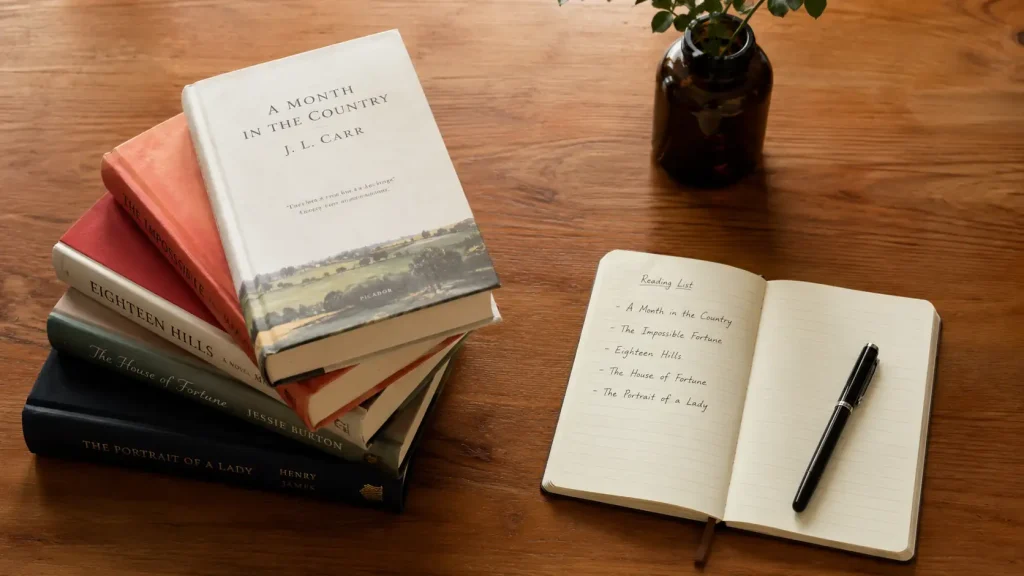 A MONTH
IN THE COUNTRY
J. L. CARR
PICADOR
THE IMPOSSIBLE
EIGHTEEN HILLS A NOVEL
The House of Fortune JESSIE BURTON
THE PORTRAIT OF A LADY HENRY JAMES
Reading List
- A Month in the Country
- The Impossible Fortune
- Eighteen Hills
- The House of Fortune
- The Portrait of a Lady